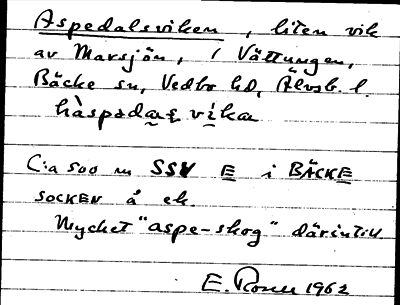 Aspedalsviken, liten vik
av Marsjön, i Vättungen,
Bäcke sn, Vedbo hd, Älvsb. l.
hàspədaɽ víka
C:a 500 m SSV E i BÄCKE
SOCKEN å ek.
Mycket "aspe-skog" därintill.
E. 1962